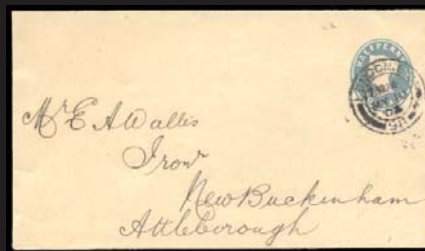 HALFPENNY
Mr E A Wallis
Ironr
New Buckenham
Attleborough